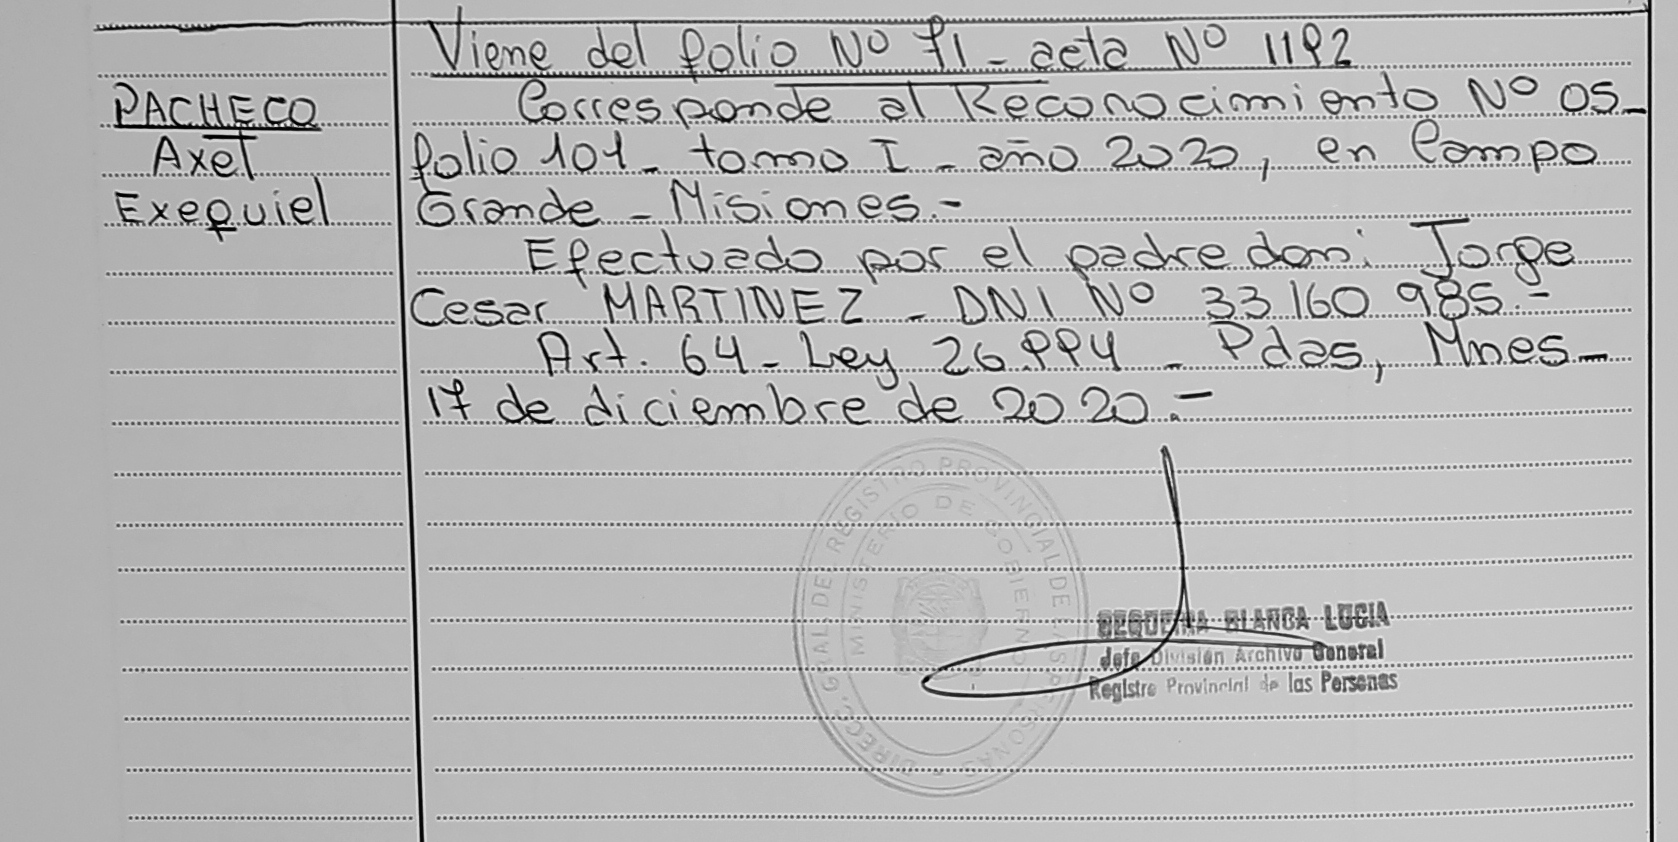 PACHECO
Axel
Exequiel
Viene del folio Nº 71 - acta Nº 1192
Corresponde al Reconocimiento Nº 05 -
folio 101 - tomo I - año 2020, en Campo
Grande - Misiones.-
Efectuado por el padre don: Jorge
Cesar MARTINEZ - DNI Nº 33 160 985.-
Art. 64 - Ley 26.994 - Pdas, Mnes -
17 de diciembre de 2020.-
DIRECC. GRAL. DEL REGISTRO PROVINCIAL DE LAS PERSONAS
MINISTERIO DE GOBIERNO
SEQUEIRA BLANCA LUCIA
Jefe División Archivo General
Registro Provincial de las Personas